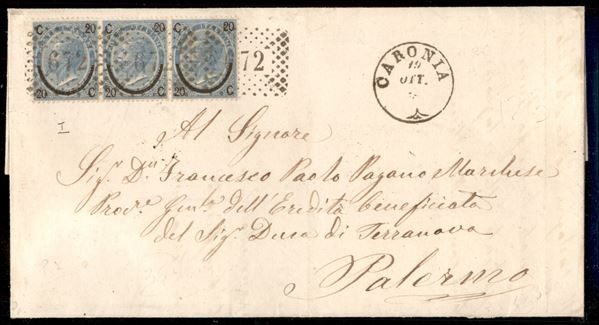 C 20 C 20 C 20
20 C 20 C 20 C
672 72
CARONIA
19
OTT.
I
Al Signore
Sig.r D.n Francesco Paolo Pagano Marchese
Proc.re Gen.le dell'Eredità beneficiata
del Sig.r Duca di Terranova
Palermo